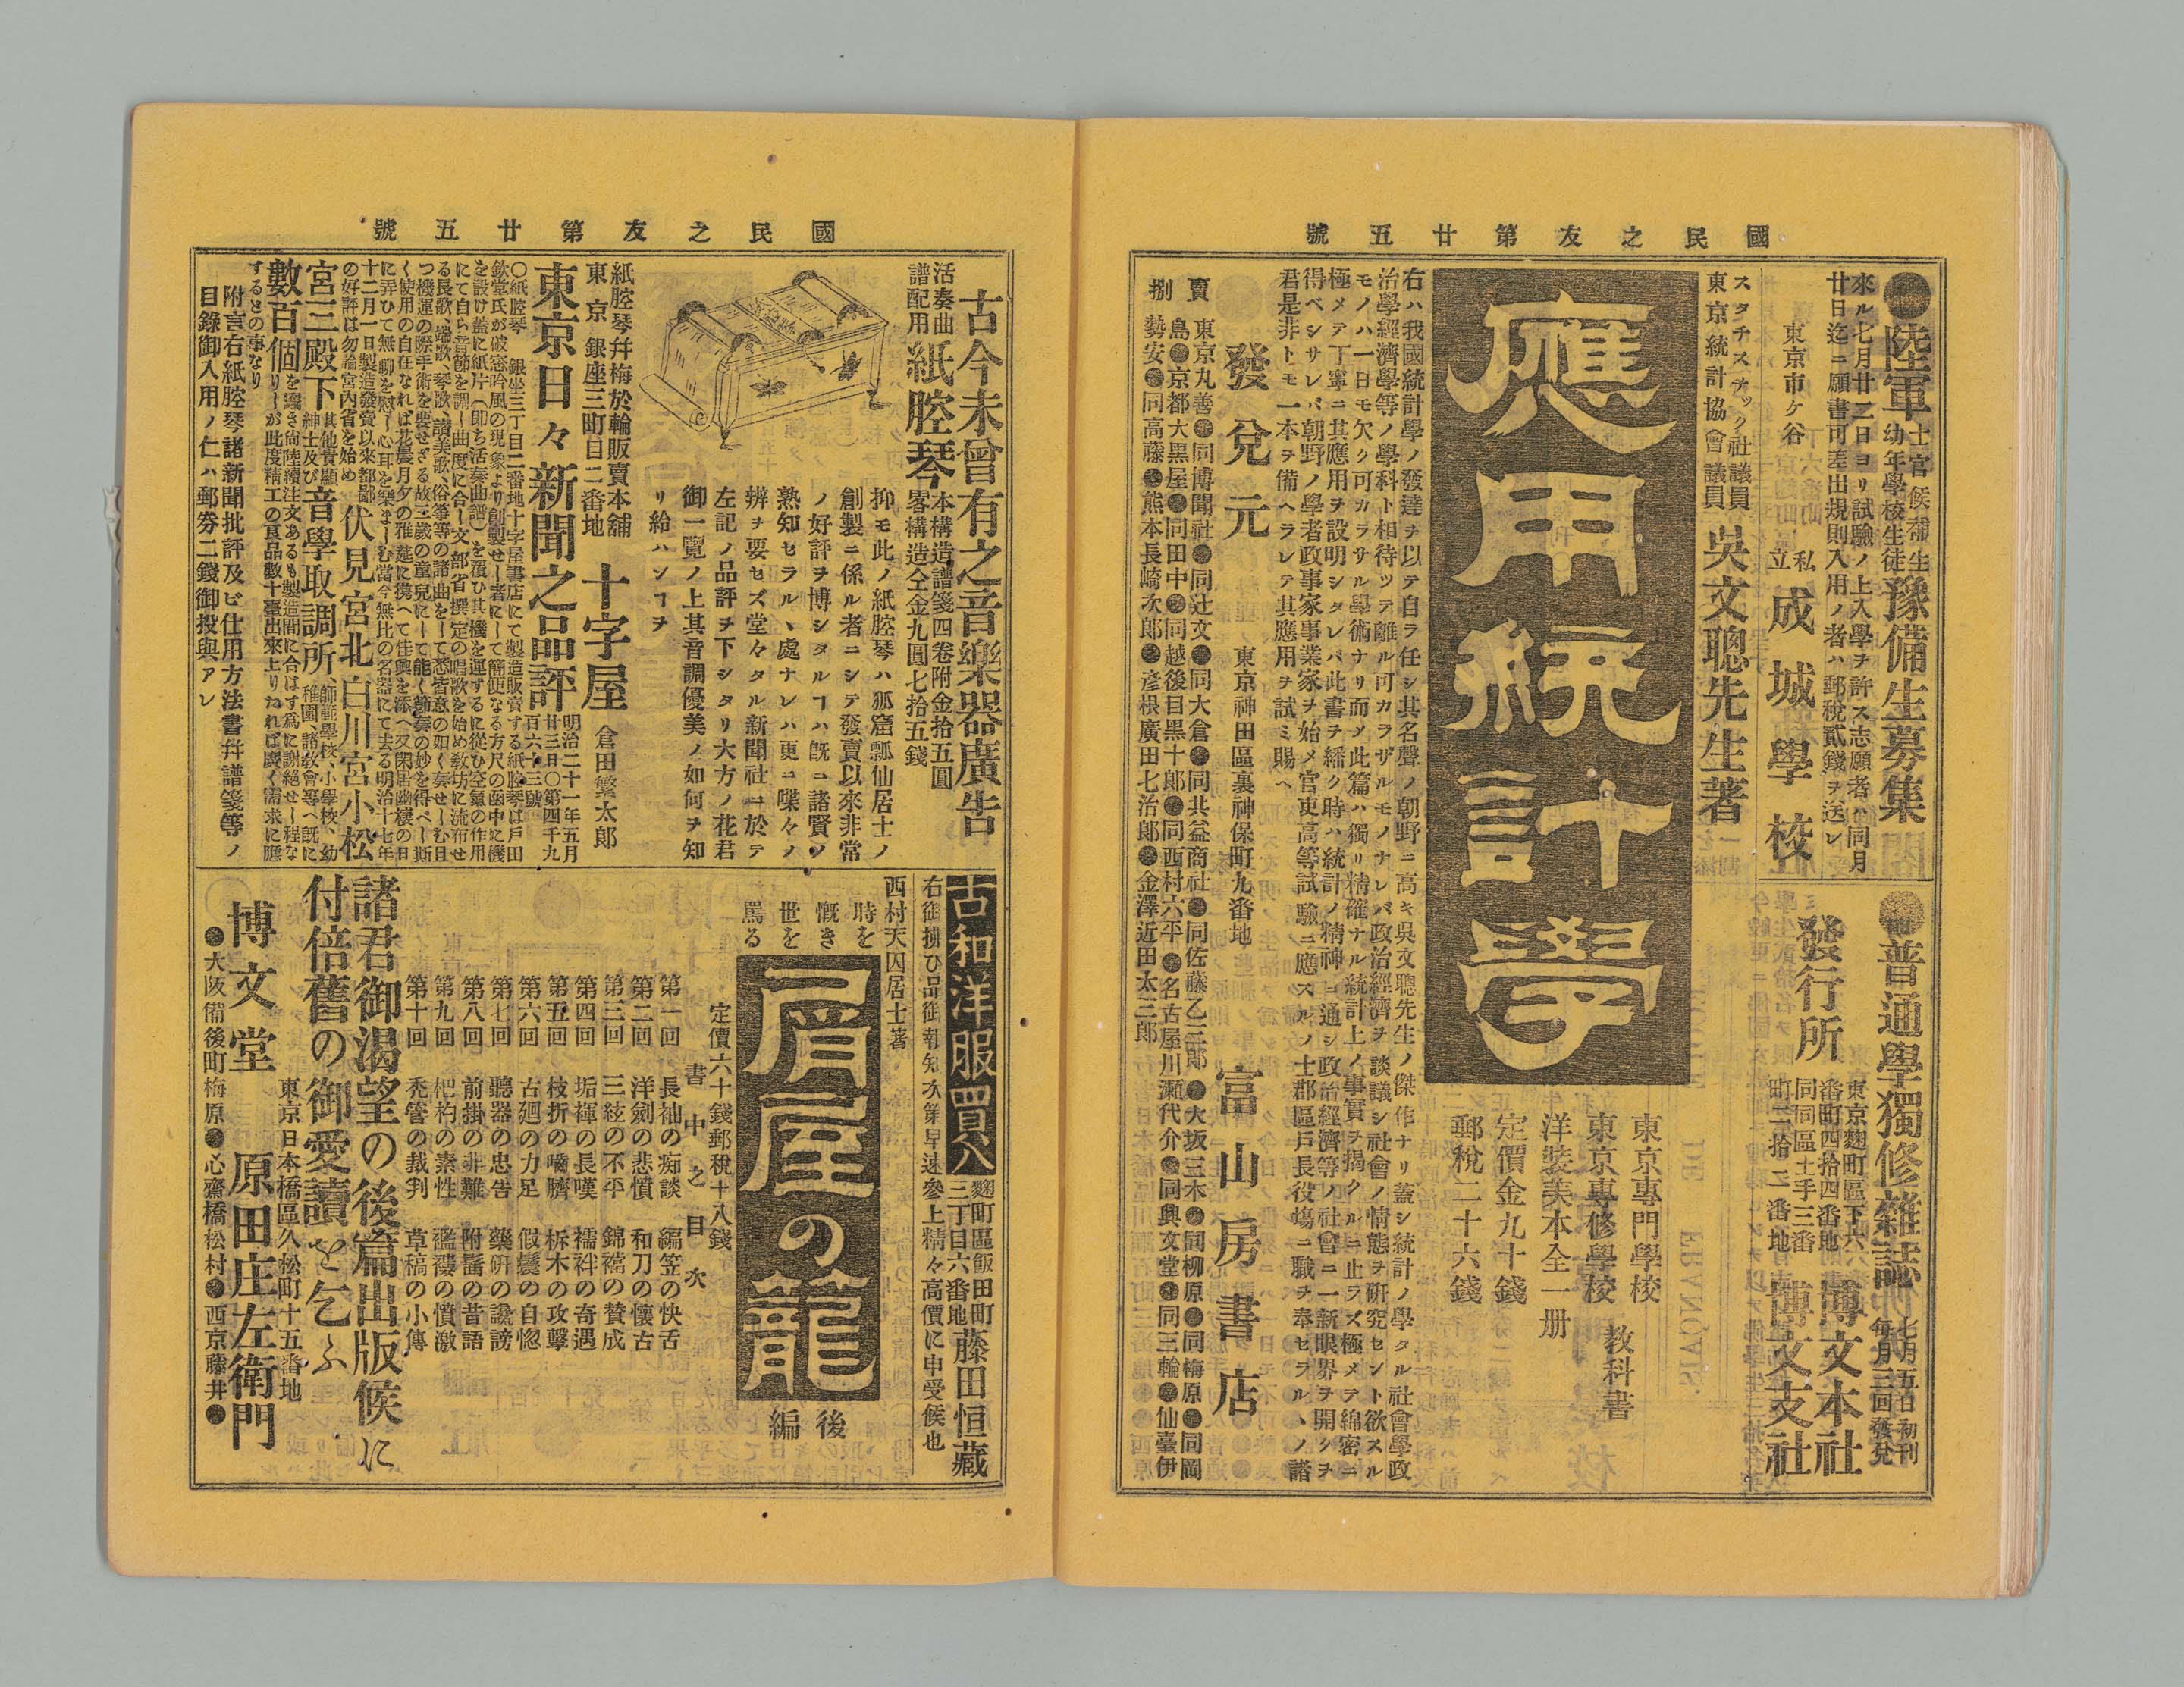 國民之友第廿五號
●陸軍士官候補生幼年學校生徒豫備生募集
來ル七月廿一日ヨリ試驗ノ上入學ヲ許ス志願者ハ同月
廿日迄ニ願書可差出規則入用ノ者ハ郵稅貳錢ヲ送レ
東京市ケ谷 私立 成城學校
●普通學獨修雜誌 七月五日初刊 每月三回發兌
發行所
東京麴町區下六番町四拾四番地 博文本社
同同區土手三番町二拾二番地 博文支社
スタチスチック社議員
東京統計協會議員 吳文聰先生著
應用統計學
東京專門學校
東京專修學校 教科書
洋裝美本全一册
定價金九十錢
郵稅二十六錢
右ハ我國統計學ノ發達ヲ以テ自ラ任シ其名聲ノ朝野ニ高キ吳文聰先生ノ傑作ナリ蓋シ統計ノ學タル社會學政
治學經濟學等ノ學科ト相待ツテ離ル可カラザルモノナレバ政治經濟ヲ談議シ社會ノ情態ヲ研究セント欲スル
モノハ一日モ欠ク可カラサル學術ナリ而〆此篇ハ獨リ精確ナル統計上ノ事實ヲ揭クルニ止ラズ極メテ綿密ニ
極メテ丁寧ニ其應用ヲ設明シタレバ此書ヲ繙ク時ハ統計ノ精神ニ通シ政治經濟等ノ社會ニ一新眼界ヲ開クヲ
得ベシサレバ朝野ノ學者政事家事業家ヲ始メ官吏高等試驗ニ應スルノ士郡區戶長役場ニ職ヲ奉セラルヽノ諸
君是非トモ一本ヲ備ヘラレテ其應用ヲ試ミ賜ヘ
發兌元 東京神田區裏神保町九番地 富山房書店
賣捌
東京丸善●同博聞社●同辻文●同大倉●同共益商社●同佐藤乙三郎●大坂三木●同柳原●同梅原●同岡
島●京都大黑屋●同田中●同越後目黑十郎●同西村六平●名古屋川瀬代介●同興文堂●同三輪●仙臺伊
勢安●同高藤●熊本長崎次郎●彥根廣田七治郎●金澤近田太三郎
國民之友第廿五號
古今未曾有之音樂器廣告
活奏曲譜配用 紙腔琴 本構造譜箋四卷附金拾五圓
畧構造仝金九圓七拾五錢
抑モ此ノ紙腔琴ハ狐窟瓢仙居士ノ
創製ニ係ル者ニシテ發賣以來非常
ノ好評ヲ博シタルヿハ旣ニ諸賢ノ
熟知セラルヽ處ナレハ更ニ喋々ノ
辨ヲ要セズ堂々タル新聞社ニ於テ
左記ノ品評ヲ下シタリ大方ノ花君
御一覽ノ上其音調優美ノ如何ヲ知
リ給ハンヿヲ
紙腔琴幷梅於輪販賣本舖
東京銀座三町目二番地 十字屋 倉田繁太郎
東京日々新聞之品評 明治二十一年五月
廿三日○第四千九
百六十三號
○紙腔琴 銀坐三丁目二番地十字屋書店にて製造販賣する紙腔琴は戶田
欽堂氏が破窓吟風の現象より創製せし者にして簡便なる方尺の函中に機
を設け蓋に紙片(卽ち活奏曲譜)を覆ひ其機を運ずるに從ひ空氣の作用
にて自ら音節を調し曲度に合し文部省撰定の唱歌を始め敎坊に流布せ
る長歌、端歌、琴歌、讃美歌、俗箏等の諸曲をして悉皆意の如く奏せしむ且
つ機運の際手術を要せざる故三歲の童兒にして能く節奏の妙を得べし斯
く使用の自在なれば花晨月夕の雅莚に携へて佳興を添へ又閑居幽棲の日
に弄ひて無聊を慰し心耳を樂ましむ當今無比の名器にて去る明治十七年
十二月一日製造發賣以來都鄙
の好評は勿論宮内省を始め 伏見宮北白川宮小松
宮三殿下 其他貴顯紳士及び 音學取調所、師範學校、小學校、幼稚園、諸敎會等へ旣に
數百個を鬻き尙陸續注文あるも製造間に合はず爲に謝絕せし程な
りしが此度精工の眞品數十臺出來上りたれば廣く需求に應
するとの事なり
附言右紙腔琴諸新聞批評及ビ仕用方法書幷譜箋等ノ
目錄御入用ノ仁ハ郵券二錢御投與アレ
古和洋服買入 麴町區飯田町三丁目六番地 藤田恒藏
右御拂ひ品御報知次第早速參上精々高價に申受候也
西村天囚居士著
時を慨き世を罵る
屑屋の籠 後編
定價六十錢郵稅十八錢
書中之目次
第一回 長袖の痴談 編笠の快舌
第二回 洋劍の悲憤 和刀の懷古
第三回 三絃の不平 錦襠の賛成
第四回 垢褌の長嘆 襦袢の奇遇
第五回 枝折の嚙臍 柝木の攻擊
第六回 古廻の力足 假鬘の自惚
第七回 聽器の忠告 藥硏の讒謗
第八回 前掛の非難 附髷の昔語
第九回 杷杓の素性 襤褸の憤激
第十回 禿管の裁判 草稿の小傳
諸君御渴望の後篇出版候に
付倍舊の御愛讀を乞ふ
東京日本橋區久松町十五番地
博文堂 原田庄左衛門
●大阪備後町梅原●心齋橋松村●西京藤井●